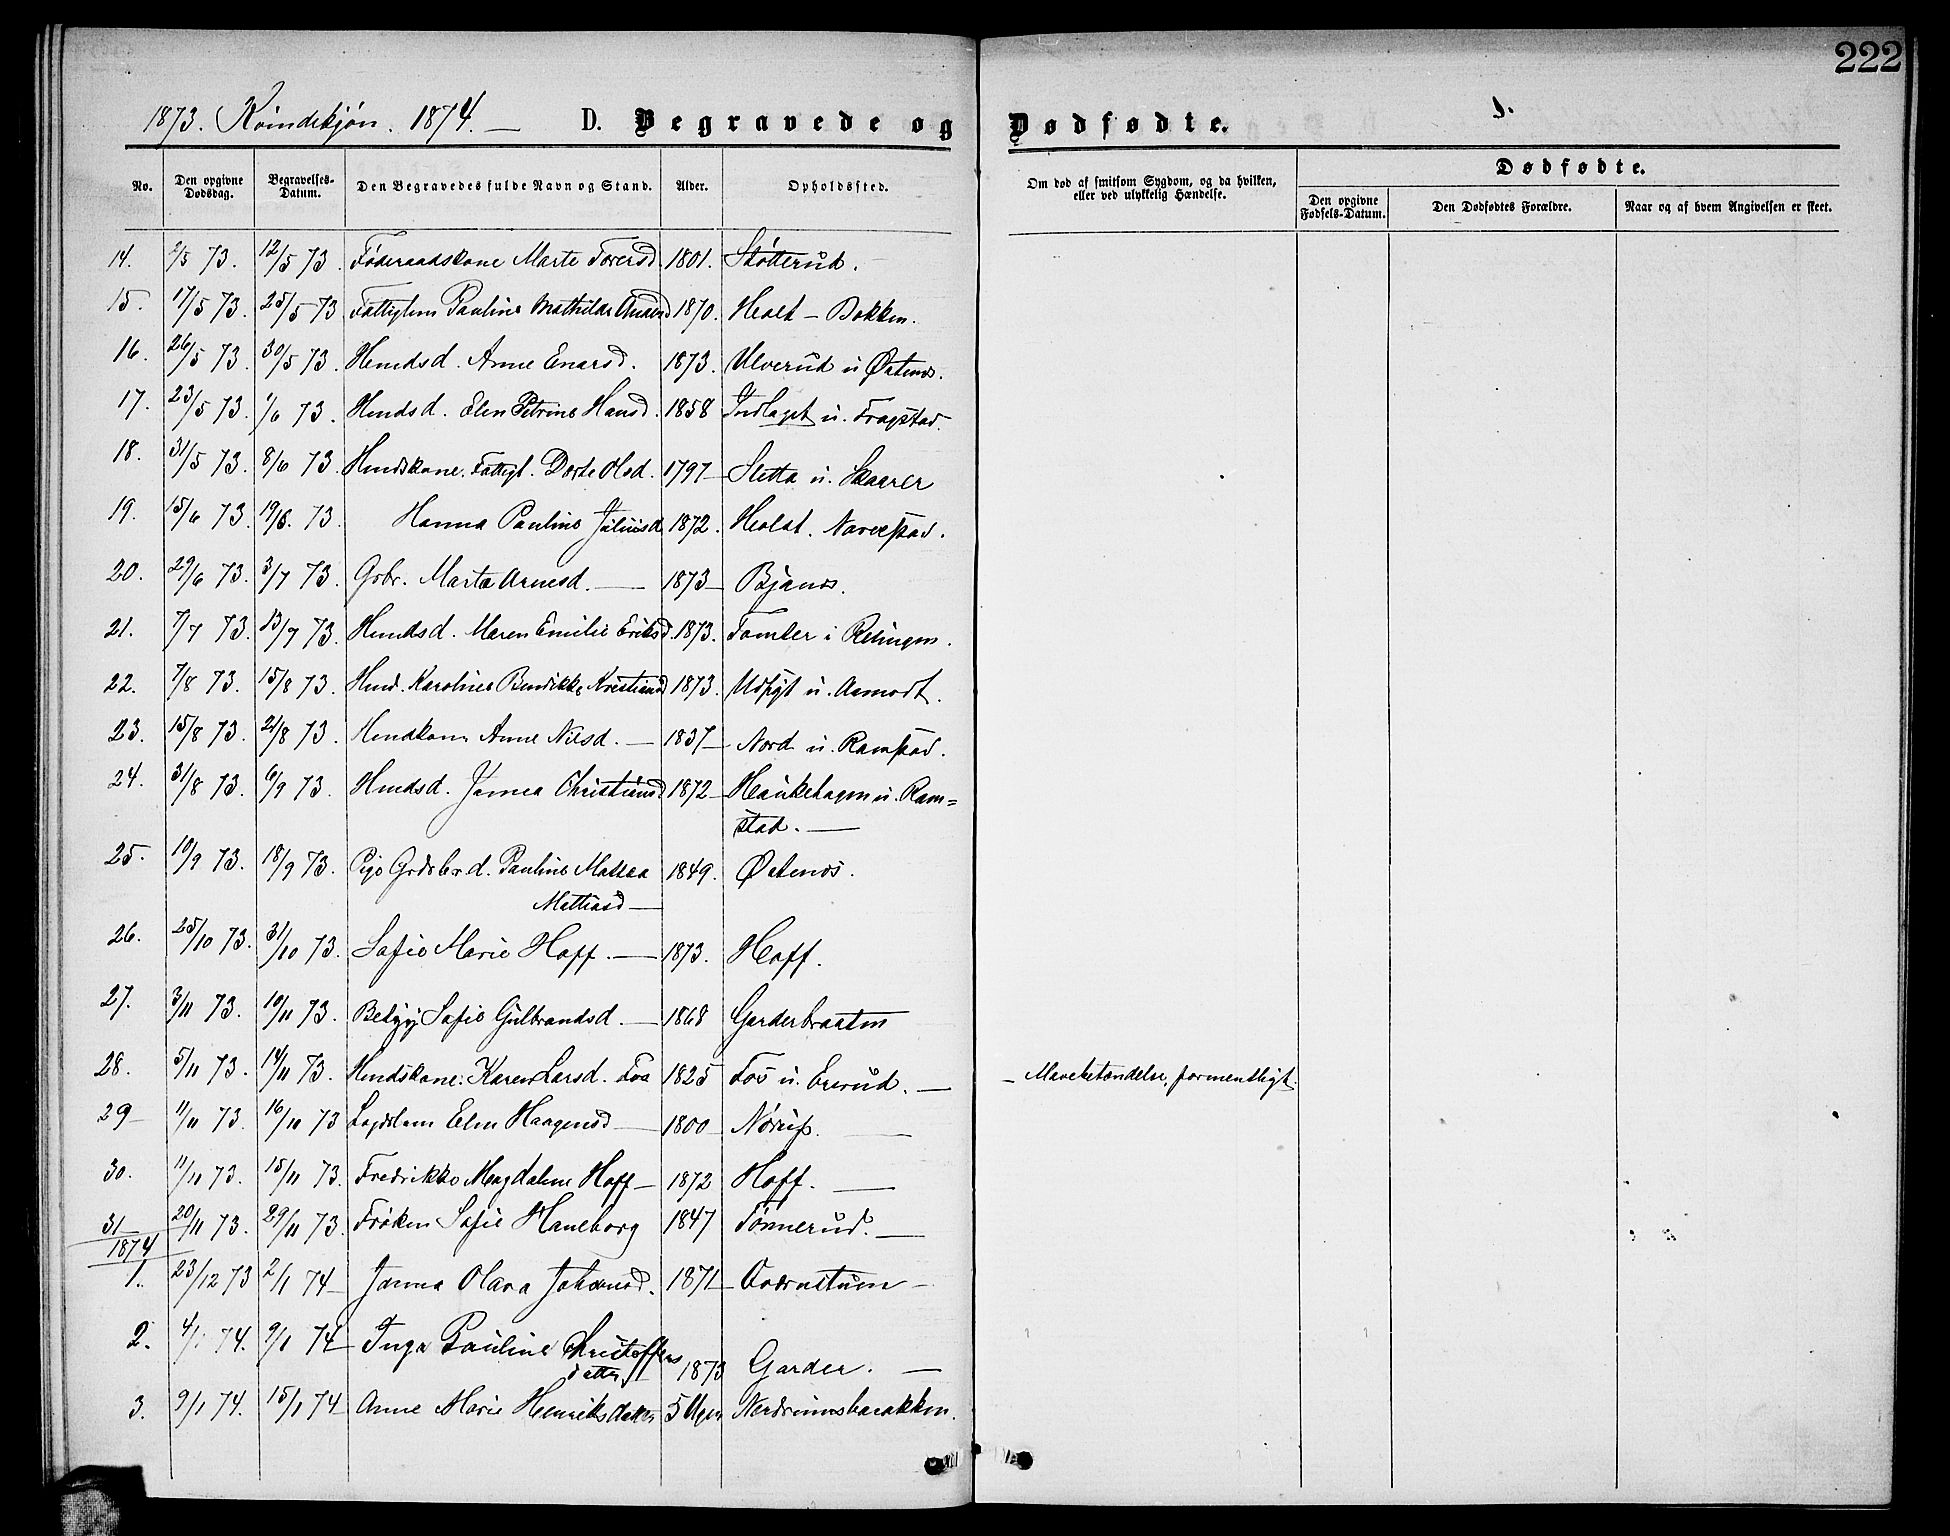 222
1873. Kvindekjøn. 1874. — D. Begravede og Dødfødte.
No. Den opgivne Dødsdag. Begravelses-Datum. Den Begravedes fulde Navn og Stand. Alder. Opholdssted. Om død af smitsom Sygdom, og da hvilken, eller ved ulykkelig Hændelse. Dødfødte.
Den opgivne Fødsels-Datum. Den Dødfødtes Forældre. Naar og af hvem Angivelsen er skeet.
14. 2/5 73. 12/5 73. Føderaadskone Marte Toversd 1801. Støtterud.
15. 17/5 73. 25/5 73 Fattiglem Pauline Mathilde 1870. Holt - Bakken.
16. 26/5 73. 30/5 73. Hmdsd. Anne Enarsd. 1873. Ulverud u Østenos.
17. 23/5 73. 1/6 73. Hmdsd. Elen Petrine Hansd. 1858 Indlaget u. Frogstad.
18. 31/5 73. 8/6 73. Hmdskone. Fattigl. Dorte Olsd. 1797 — Sletta u. Skaarer
19. 15/6 73. 19/6. 73. Hanna Pauline Juliusd 1872. Holst. Naverstad.
20. 29/6 73. 3/7 73. Gbr. Marta Arnesd. — 1873 — Bjanes.
21. 7/7 73. 13/7 73. Hmdsd. Maren Emilie Eriksd. 1873. Tomter i Relingen.
22. 7/8 73. 15/8 73. Hmd. Karoline Bendikke Kristiansd 1873. Udsigt u. Aamodt.
23. 15/8 73. 21/8 73. Hmdkone Anne Nilsd. — 1837 — Nord u. Ramstad.
24. 31/8 73. 6/9 73. Hmdsd. Janna Christiansd 1872 — Haukehagen u. Ram=
stad. —
25. 10/9 73. 18/9 73. Pige Grdbr. d. Pauline Matea 1849. Østenos.
Mattiasd —
26. 25/10 73. 31/10 73. Sofie Marie Hoff. — 1873. Hoff.
27. 3/11 73. 10/11 73. Betzy Sofie Gulbrandsd. — 1868 Garderbraaten
28. 5/11 73. 14/11 73. Hmdskone. Karen Larsd. Fos 1825 Fos u. Everud. — - Mavebetændelse, formentligt.
29 - 11/11 73. 16/11 73 Lægdslem Elen Haagensd — 1800 — Nørup. —
30. 11/11 73. 15/11 73. Fredrikke Magdalene Hoff — 1872 Hoff. —
31 20/11 73. 29/11 73. Frøken Sofie Haneborg 1847 Tønnerud. —
1874
1. 23/12 73 2/1 74 — Janna Olava Johansd. 1871 — Ovdruttum —
2. 4/1 74. 9/1 74 — Inga Pauline Kristoffers
datter 1873 Garder. —
3. 9/1 74. 15/1 74 Anne Marie Henriksdatter 5 Uger Nordrumsbarakken.